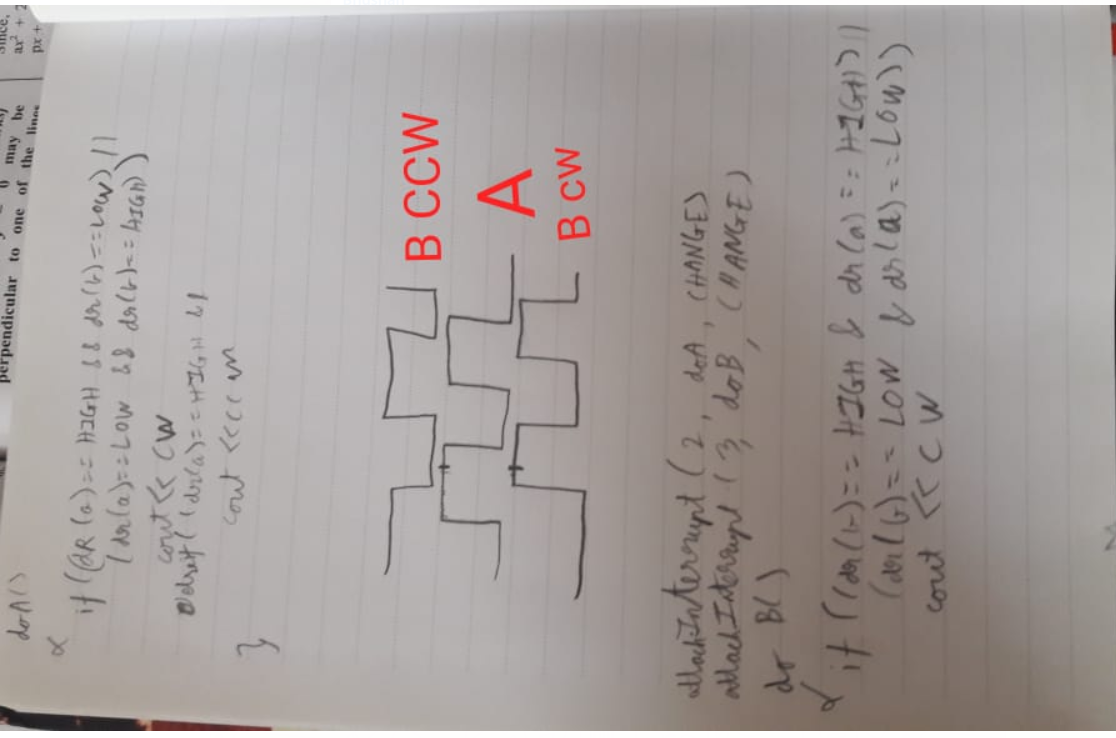 perpendicular to one of the lines
0 may be
Since,
ax² + 2
px +
doA()
{
if ((dR(a)== HIGH && dr(b)==LOW) ||
(dr(a)==LOW && dr(b)== HIGH))
cout << CW
if ((dr(a)== HIGH &&
cout <<
}
B CCW
A
B CW
attachInterrupt (2, doA, CHANGE)
attachInterrupt (3, doB, CHANGE)
do B()
{ if ((dr(b)== HIGH & dr(a)== HIGH) ||
(dr(b)== LOW & dr(a)==LOW))
cout << CW